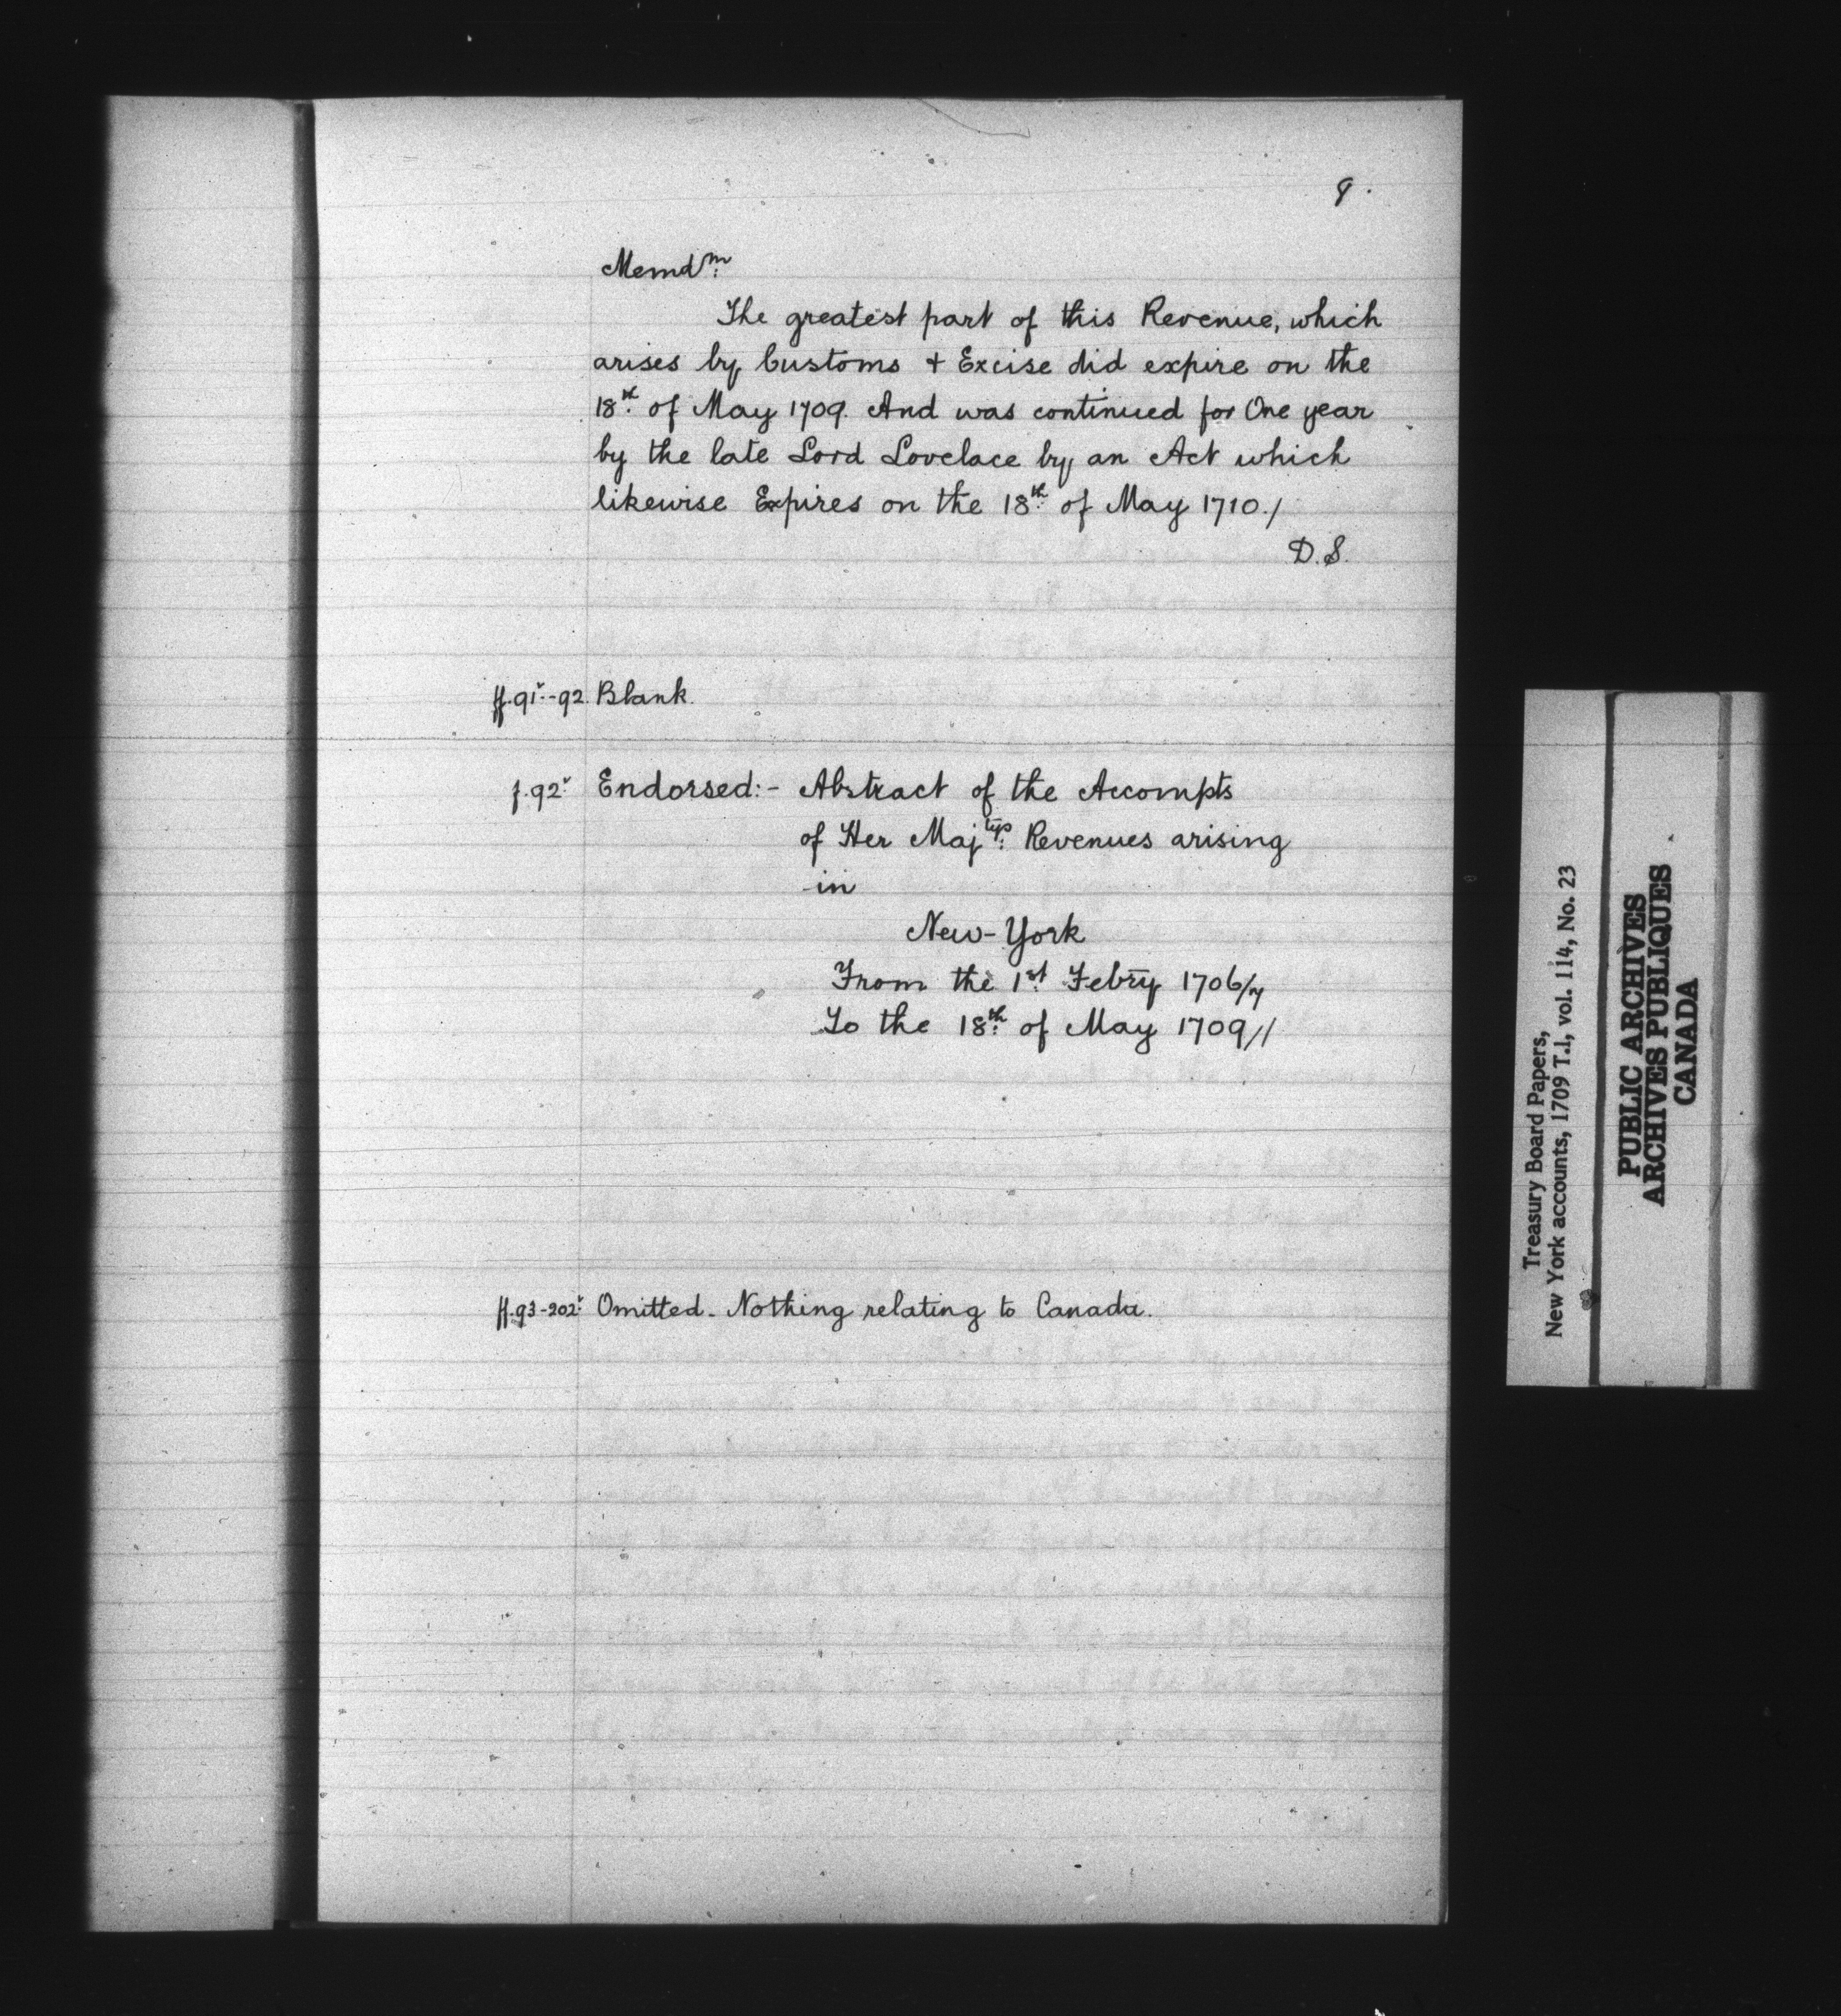 9.
Memdm.
The greatest part of this Revenue, which
arises by Customs + Excise did expire on the
18th. of May 1709. And was continued for One year
by the late Lord Lovelace by an Act which
likewise Expires on the 18th. of May 1710./
D.S.
ff.91v.-92. Blank.
f.92v. Endorsed:- Abstract of the Accompts
of Her Majtys. Revenues arising
in
New-York
From the 1st. Febry 1706/7
To the 18th. of May 1709//
ff.93-202v. Omitted. Nothing relating to Canada.
Treasury Board Papers,
New York accounts, 1709 T.1, vol. 114, No. 23
PUBLIC ARCHIVES
ARCHIVES PUBLIQUES
CANADA